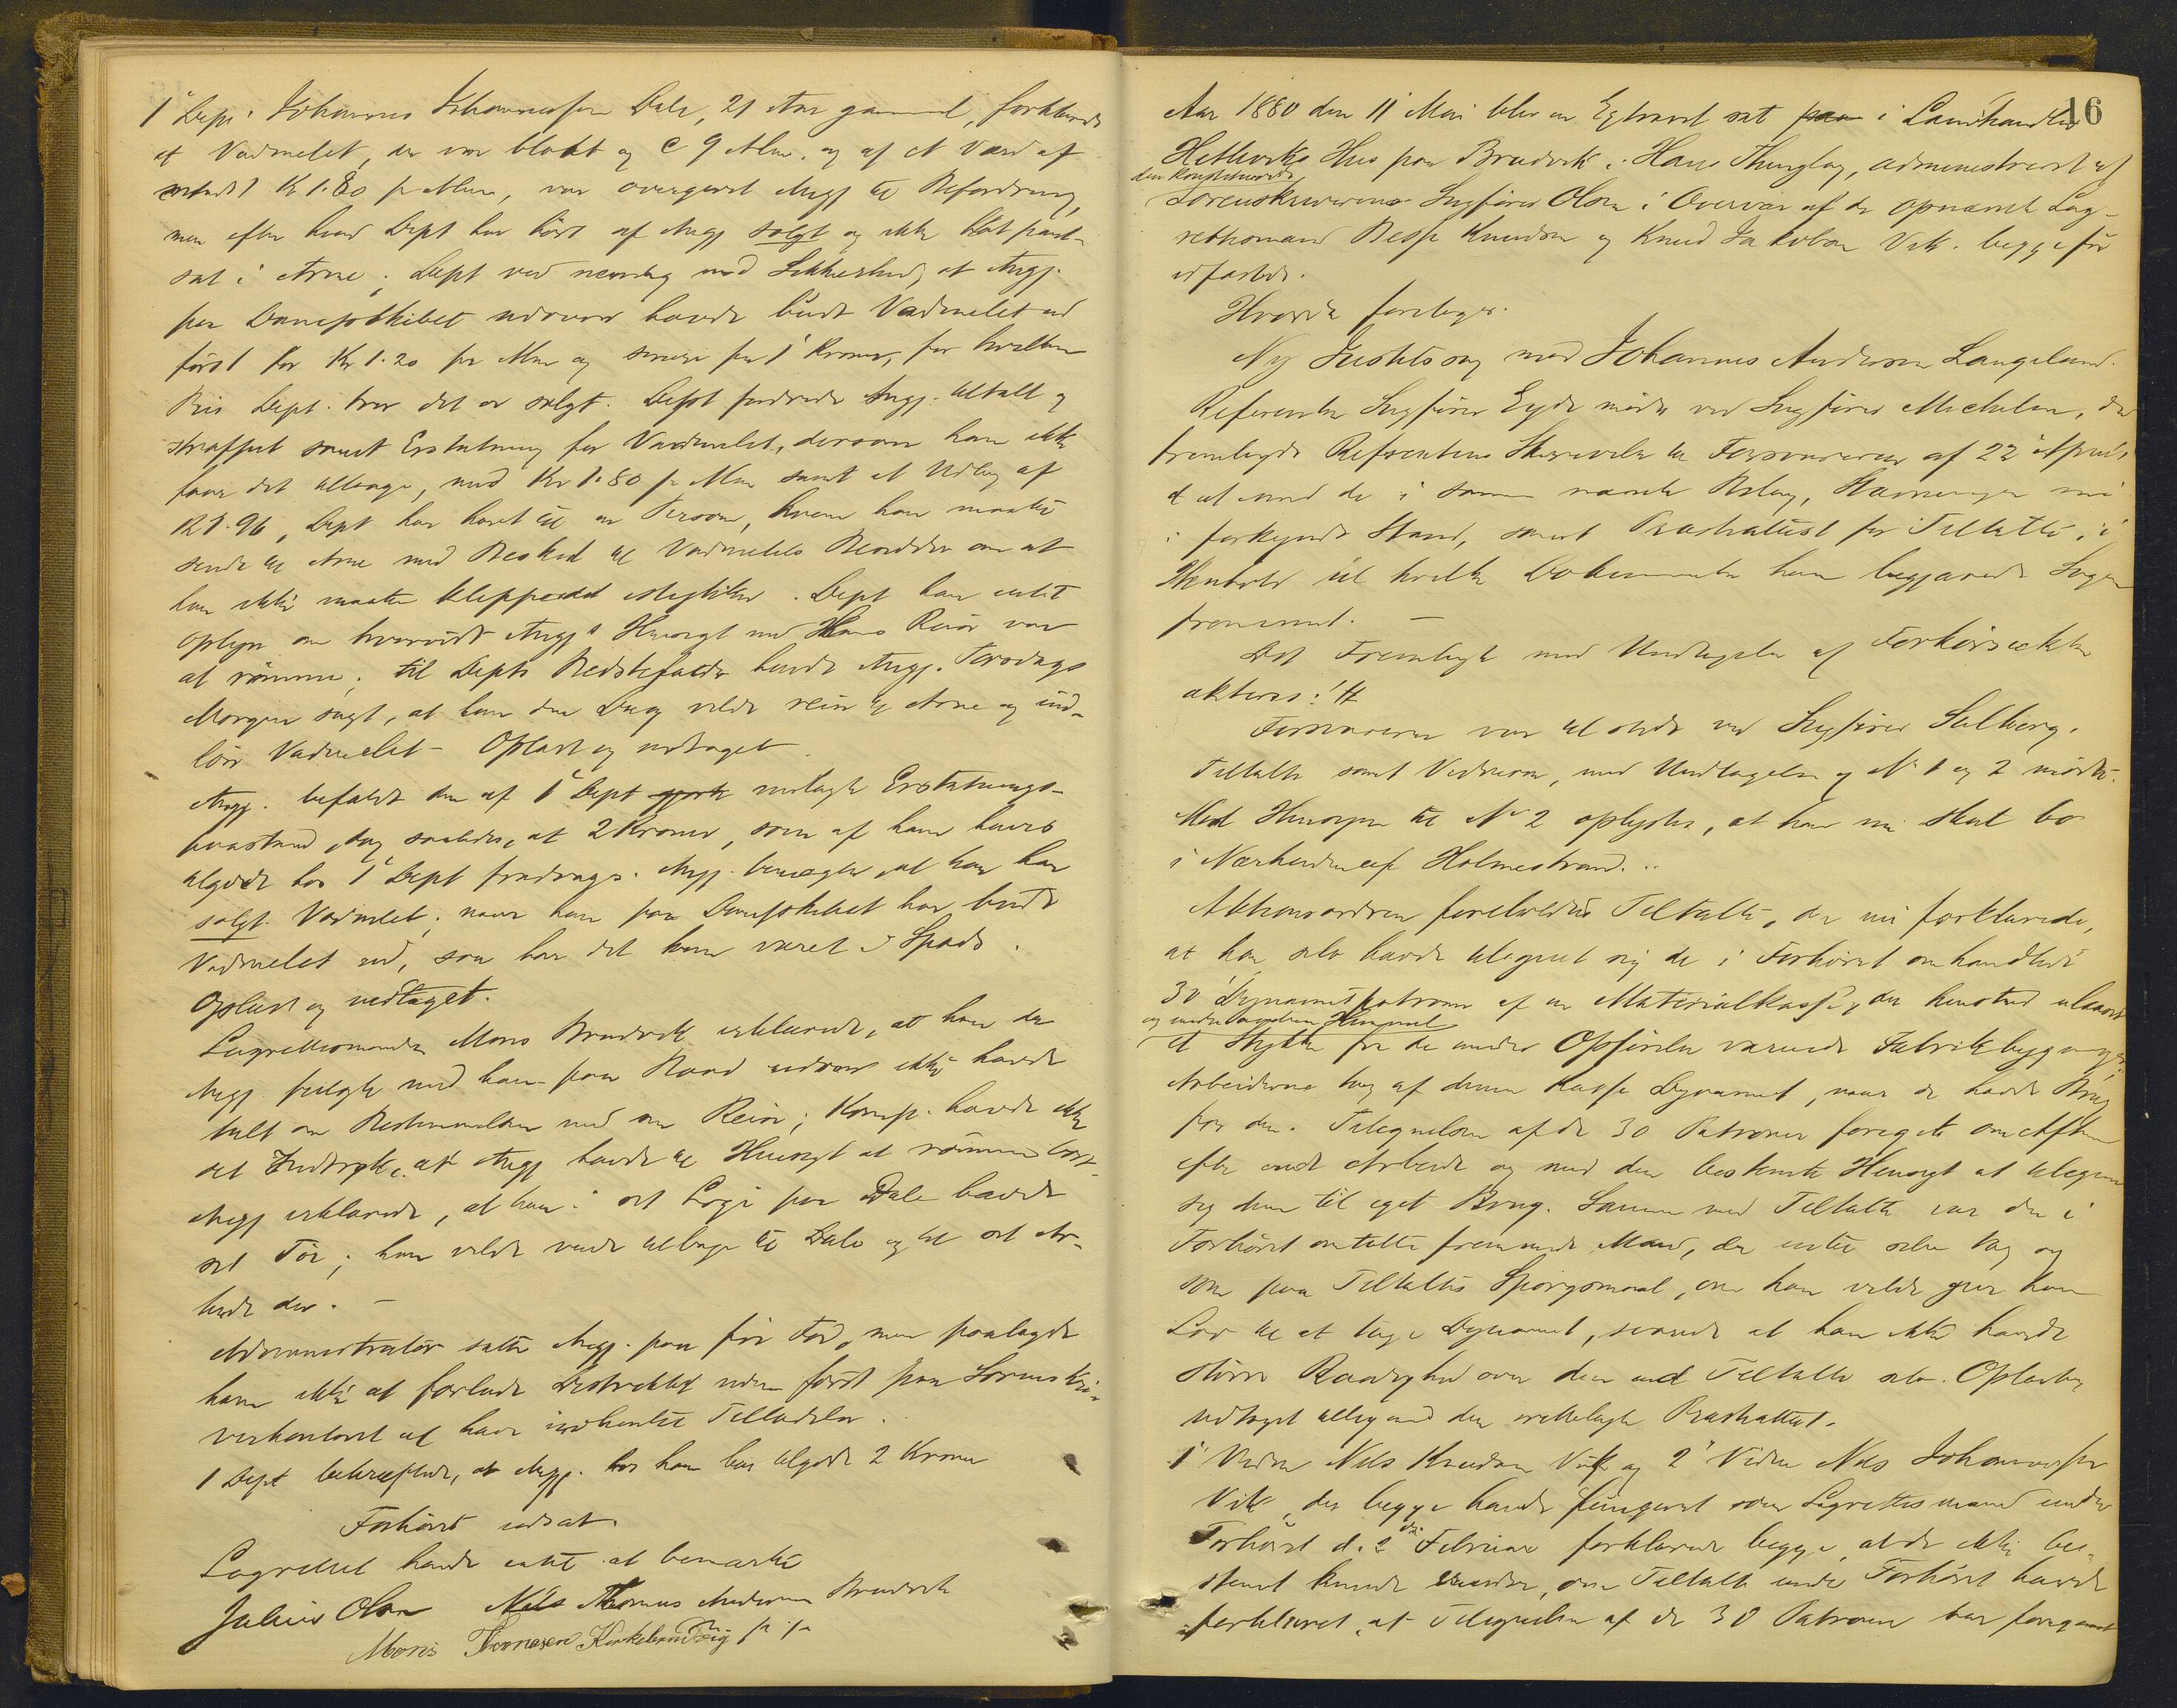 1' Dept: Johannes Johannessen Dale, 21 Aar gammel, forklarede
at Vadmelet, der var blaat og c 9 Alen, og af et Værd af
mindst Kr 1.80 pr Alen, var overgivet Angj til Befordring,
men efter hvad Dept har hørt af Angj solgt og ikke blot pant-
sat i Arne; Dept ved nemlig med Sikkerhed, at Angj.
paa Dampskibet udover havde budt Vadmelet ud
først for Kr 1.20 pr Alen og senere for 1 Krone, for hvilken
Pris Dept. tror det er solgt. Dept fordrede Angj. tiltalt og
straffet samt Erstatning for Vadmelet, dersom han ikke
faar det tilbage, med Kr 1.80 pr Alen samt et Udlæg af
Kr. 96, Dept har havt til en Person, hvem han maatte
sende til Arne med Besked til Vadmelets
han ikke maatte klippe det. Dept kan intet
oplyse om hvorvidt Angj's Hensigt med Hans Reise var
at rømme; til Depts Bedstefader havde Angj. Torsdags
Morgen sagt, at han den Dag vilde reise til Arne og ind-
løse Vadmelet – Oplæst og vedtaget.
Angj. befaldt den af 1' Dept gjorte nedlagte Erstatnings-
paastand, dog saaledes, at 2 Kroner, som af ham haves
tilgode hos 1' Dept fradrages. Angj. benægter, at han har
solgt Vadmelet; naar han paa Dampskibet har budt
Vadmelet ud, saa har det kun været i Spøg.
Oplæst og vedtaget.
Lagrettesmanden Mons Brudvik erklærede, at han da
Angj. fulgte med ham paa Baad udover ikke havde
talt om Bestemmelsen med sin Reise; Komp. havde ikke
det Indtryk, at Angj havde til Hensigt at rømme bort.
Angj erklærede, at han i sit Logi paa Dale havde
sit Tøi; han vilde vende tilbage til Dale og til sit Ar-
beide der. –
Administrator satte Angj. paa fri Fod, men paalagde
ham ikke at forlade Distriktet uden først paa Sorenskri-
verkontoret at have indhentet Tilladelse.
1 Dept bekræftede, at Angj. hos ham har tilgode 2 Kroner
Forhøret udsat.
Lagrettet havde intet at bemærke
Julius Olsen Nils Thomas Andersen Brudvik
Mons Thomesen Kirkebrudvig
16
Aar 1880 den 11' Mai blev en Extraret sat paa i Landhandler
Hetlevik's Hus paa Brudvik i Haus Thinglag, administreret af
den konstituerede
Sorenskriverens Sagfører Olsen i Overvær af de opnævnte Lag-
rettesmænd Besse Knudsen og Knud Jakobsen Vik. begge før
edfæstede.
Hvorda foretoges:
Ny Justitssag mod Johannes Andersen Langeland.
Referenten Sagfører Eyde mødte ved Sagfører Michelsen, der
fremlagde Referentens Skrivelse til Forsvareren af 22' April,
med de i samme nævnte Bilag, Stævningen nu
i forkyndt Stand, samt Præsteattest for Tiltalte, i
Henhold til hvilke Dokumenter han begjærede Sagen
fremmet. –
Det Fremlagte med Undtagelse af Forhørsakten
akteres: #
Forsvareren var tilstede ved Sagfører Solberg.
Tiltalte samt Vidnerne, med Undtagelse af No 1 og 2 mødte.
Med Hensyn til No 2 oplystes, at han nu skal bo
i Nærheden af Holmestrand.
Aktionsordren foreholdtes Tiltalte, der nu forklarede,
at han selv havde tilegnet sig de i Forhøret omhandlede
30 Dynamitpatroner af en Materialkasse, der henstod ulaaset
og under aaben Himmel
et Stykke fra de under Opførelse værende Fabrikbygninger.
Arbeiderne tog af denne Kasse Dynamit, naar de havde Brug
for den. Tilegnelsen af de 30 Patroner foregik om Aftenen
efter endt Arbeide og med den bestemte Hensigt at tilegne
sig dem til eget Brug. Sammen med Tiltalte var den i
Forhøret omtalte fremmede Mand, der intet selv tog og
som paa Tiltaltes Spørgsmaal, om han vilde give ham
Lov til at tage Dynamit, svarede at han ikke havde
større Raadighed over den end Tiltalte selv. Oplæst
vedtaget tilligemed den irettelagte Præsteattest.
1' Vidne Nils Knudsen Vik og 2' Vidne Nils Johannessen
Vik, der begge havde fungeret som Lagrettesmænd under
Forhøret d. 2den Februar forklarede begge, at de ikke be-
stemt kunde, om Tiltalte under Forhøret havde
forklaret, at Tilegnelsen af de 30 Patroner var foregaaet